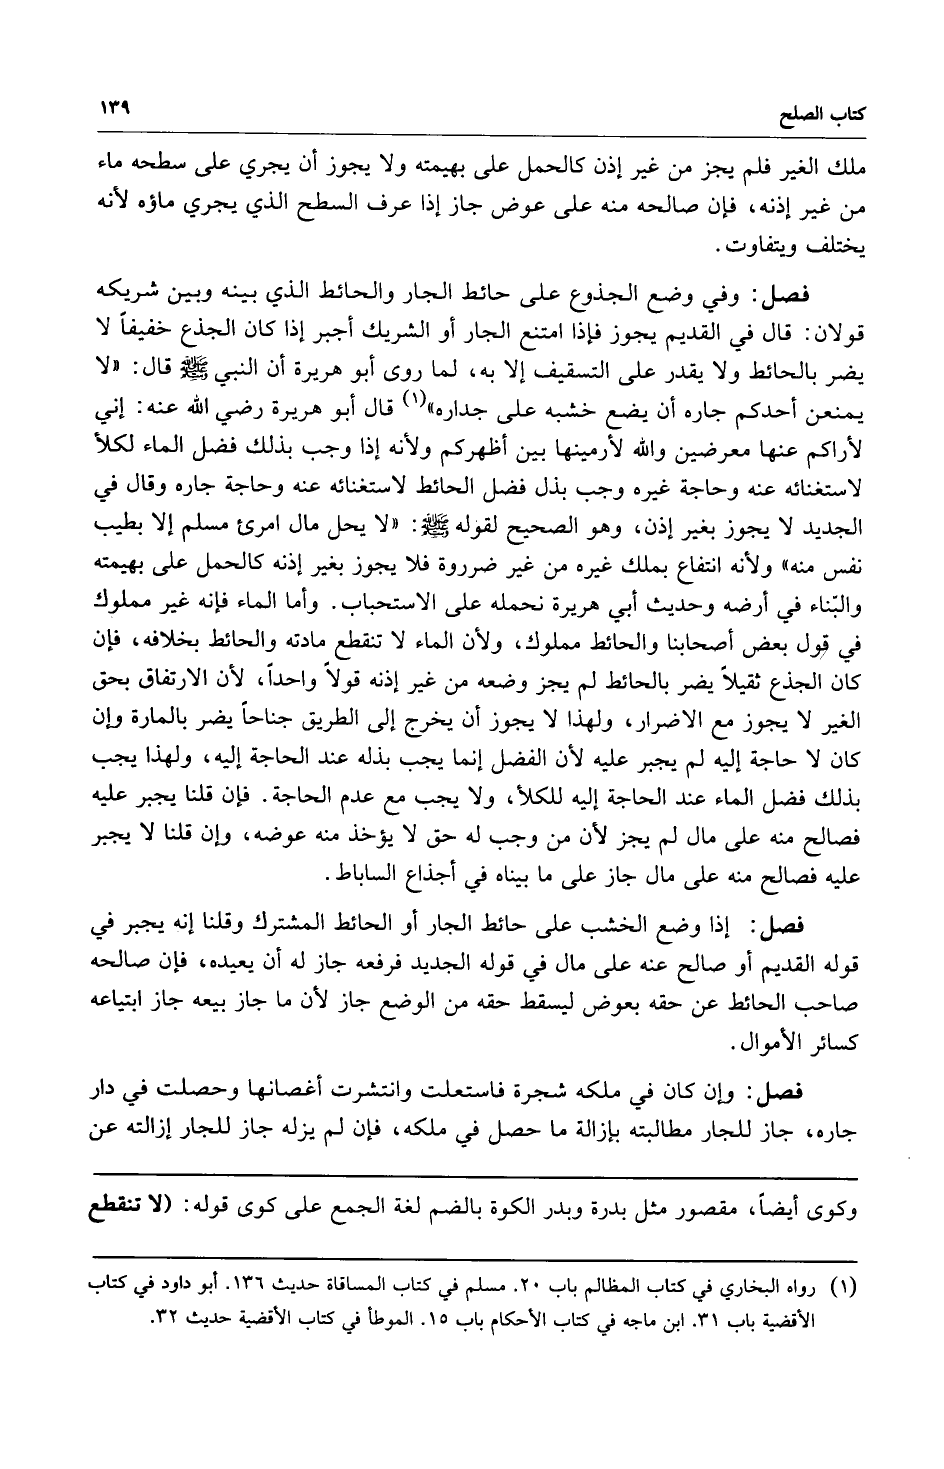 كتاب الصلح
١٣٩
ملك الغير فلم يجز من غير إذن كالحمل على بهيمته ولا يجوز أن يجري على سطحه ماء
من غير إذنه، فإن صالحه منه على عوض جاز إذا عرف السطح الذي يجري ماؤه لأنه
يختلف ويتفاوت.
فصل: وفي وضع الجذوع على حائط الجار والحائط الذي بينه وبين شريكه
قولان: قال في القديم يجوز فإذا امتنع الجار أو الشريك أجبر إذا كان الجذع خفيفاً لا
يضر بالحائط ولا يقدر على التسقيف إلا به، لما روى أبو هريرة أن النبي ﷺ قال: «لا
يمنعن أحدكم جاره أن يضع خشبه على جداره»(١) قال أبو هريرة رضي الله عنه: إني
لأراكم عنها معرضين والله لأرمينها بين أظهركم ولأنه إذا وجب بذلك فضل الماء لكلأ
لاستغنائه عنه وحاجة غيره وجب بذل فضل الحائط لاستغنائه عنه وحاجة جاره وقال في
الجديد لا يجوز بغير إذن، وهو الصحيح لقوله ﷺ: «لا يحل مال امرئ مسلم إلا بطيب
نفس منه» ولأنه انتفاع بملك غيره من غير ضرروة فلا يجوز بغير إذنه كالحمل على بهيمته
والبّناء في أرضه وحديث أبي هريرة نحمله على الاستحباب. وأما الماء فإنه غير مملوك
في قول بعض أصحابنا والحائط مملوك، ولأن الماء لا تنقطع مادته والحائط بخلافه، فإن
كان الجذع ثقيلاً يضر بالحائط لم يجز وضعه من غير إذنه قولاً واحداً، لأن الارتفاق بحق
الغير لا يجوز مع الاضرار، ولهذا لا يجوز أن يخرج إلى الطريق جناحاً يضر بالمارة وإن
كان لا حاجة إليه لم يجبر عليه لأن الفضل إنما يجب بذله عند الحاجة إليه، ولهذا يجب
بذلك فضل الماء عند الحاجة إليه للكلأ، ولا يجب مع عدم الحاجة. فإن قلنا يجبر عليه
فصالح منه على مال لم يجز لأن من وجب له حق لا يؤخذ منه عوضه، وإن قلنا لا يجبر
عليه فصالح منه على مال جاز على ما بيناه في أجذاع الساباط.
فصل: إذا وضع الخشب على حائط الجار أو الحائط المشترك وقلنا إنه يجبر في
قوله القديم أو صالح عنه على مال في قوله الجديد فرفعه جاز له أن يعيده، فإن صالحه
صاحب الحائط عن حقه بعوض ليسقط حقه من الوضع جاز لأن ما جاز بيعه جاز ابتياعه
كسائر الأموال.
فصل: وإن كان في ملكه شجرة فاستعلت وانتشرت أغصانها وحصلت في دار
جاره، جاز للجار مطالبته بإزالة ما حصل في ملكه، فإن لم يزله جاز للجار إزالته عن
وكوى أيضاً، مقصور مثل بدرة وبدر الكوة بالضم لغة الجمع على كوى قوله: (لا تنقطع
(١) رواه البخاري في كتاب المظالم باب ٢٠. مسلم في كتاب المساقاة حديث ١٣٦. أبو داود في كتاب
الأقضية باب ٣١. ابن ماجه في كتاب الأحكام باب ١٥. الموطأ في كتاب الأقضية حديث ٣٢.